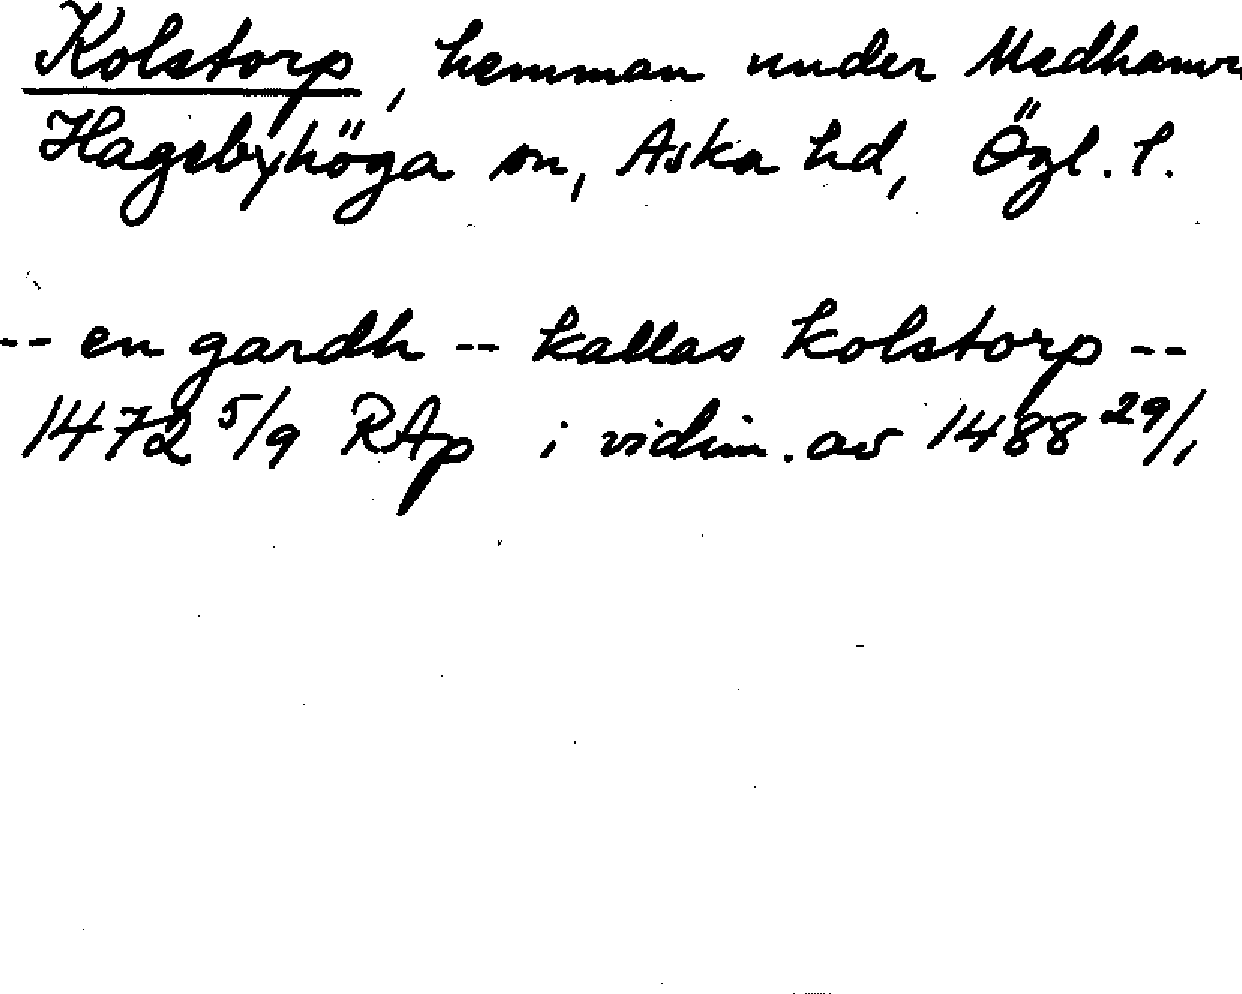 Kolstorp, hemman under Medhamr
Hagebyhöga sn, Aska hd, Ögl. l.
-- en gardh -- kallas kolstorp --
1472 5/9 RAp i vidim. av 1488 29/1